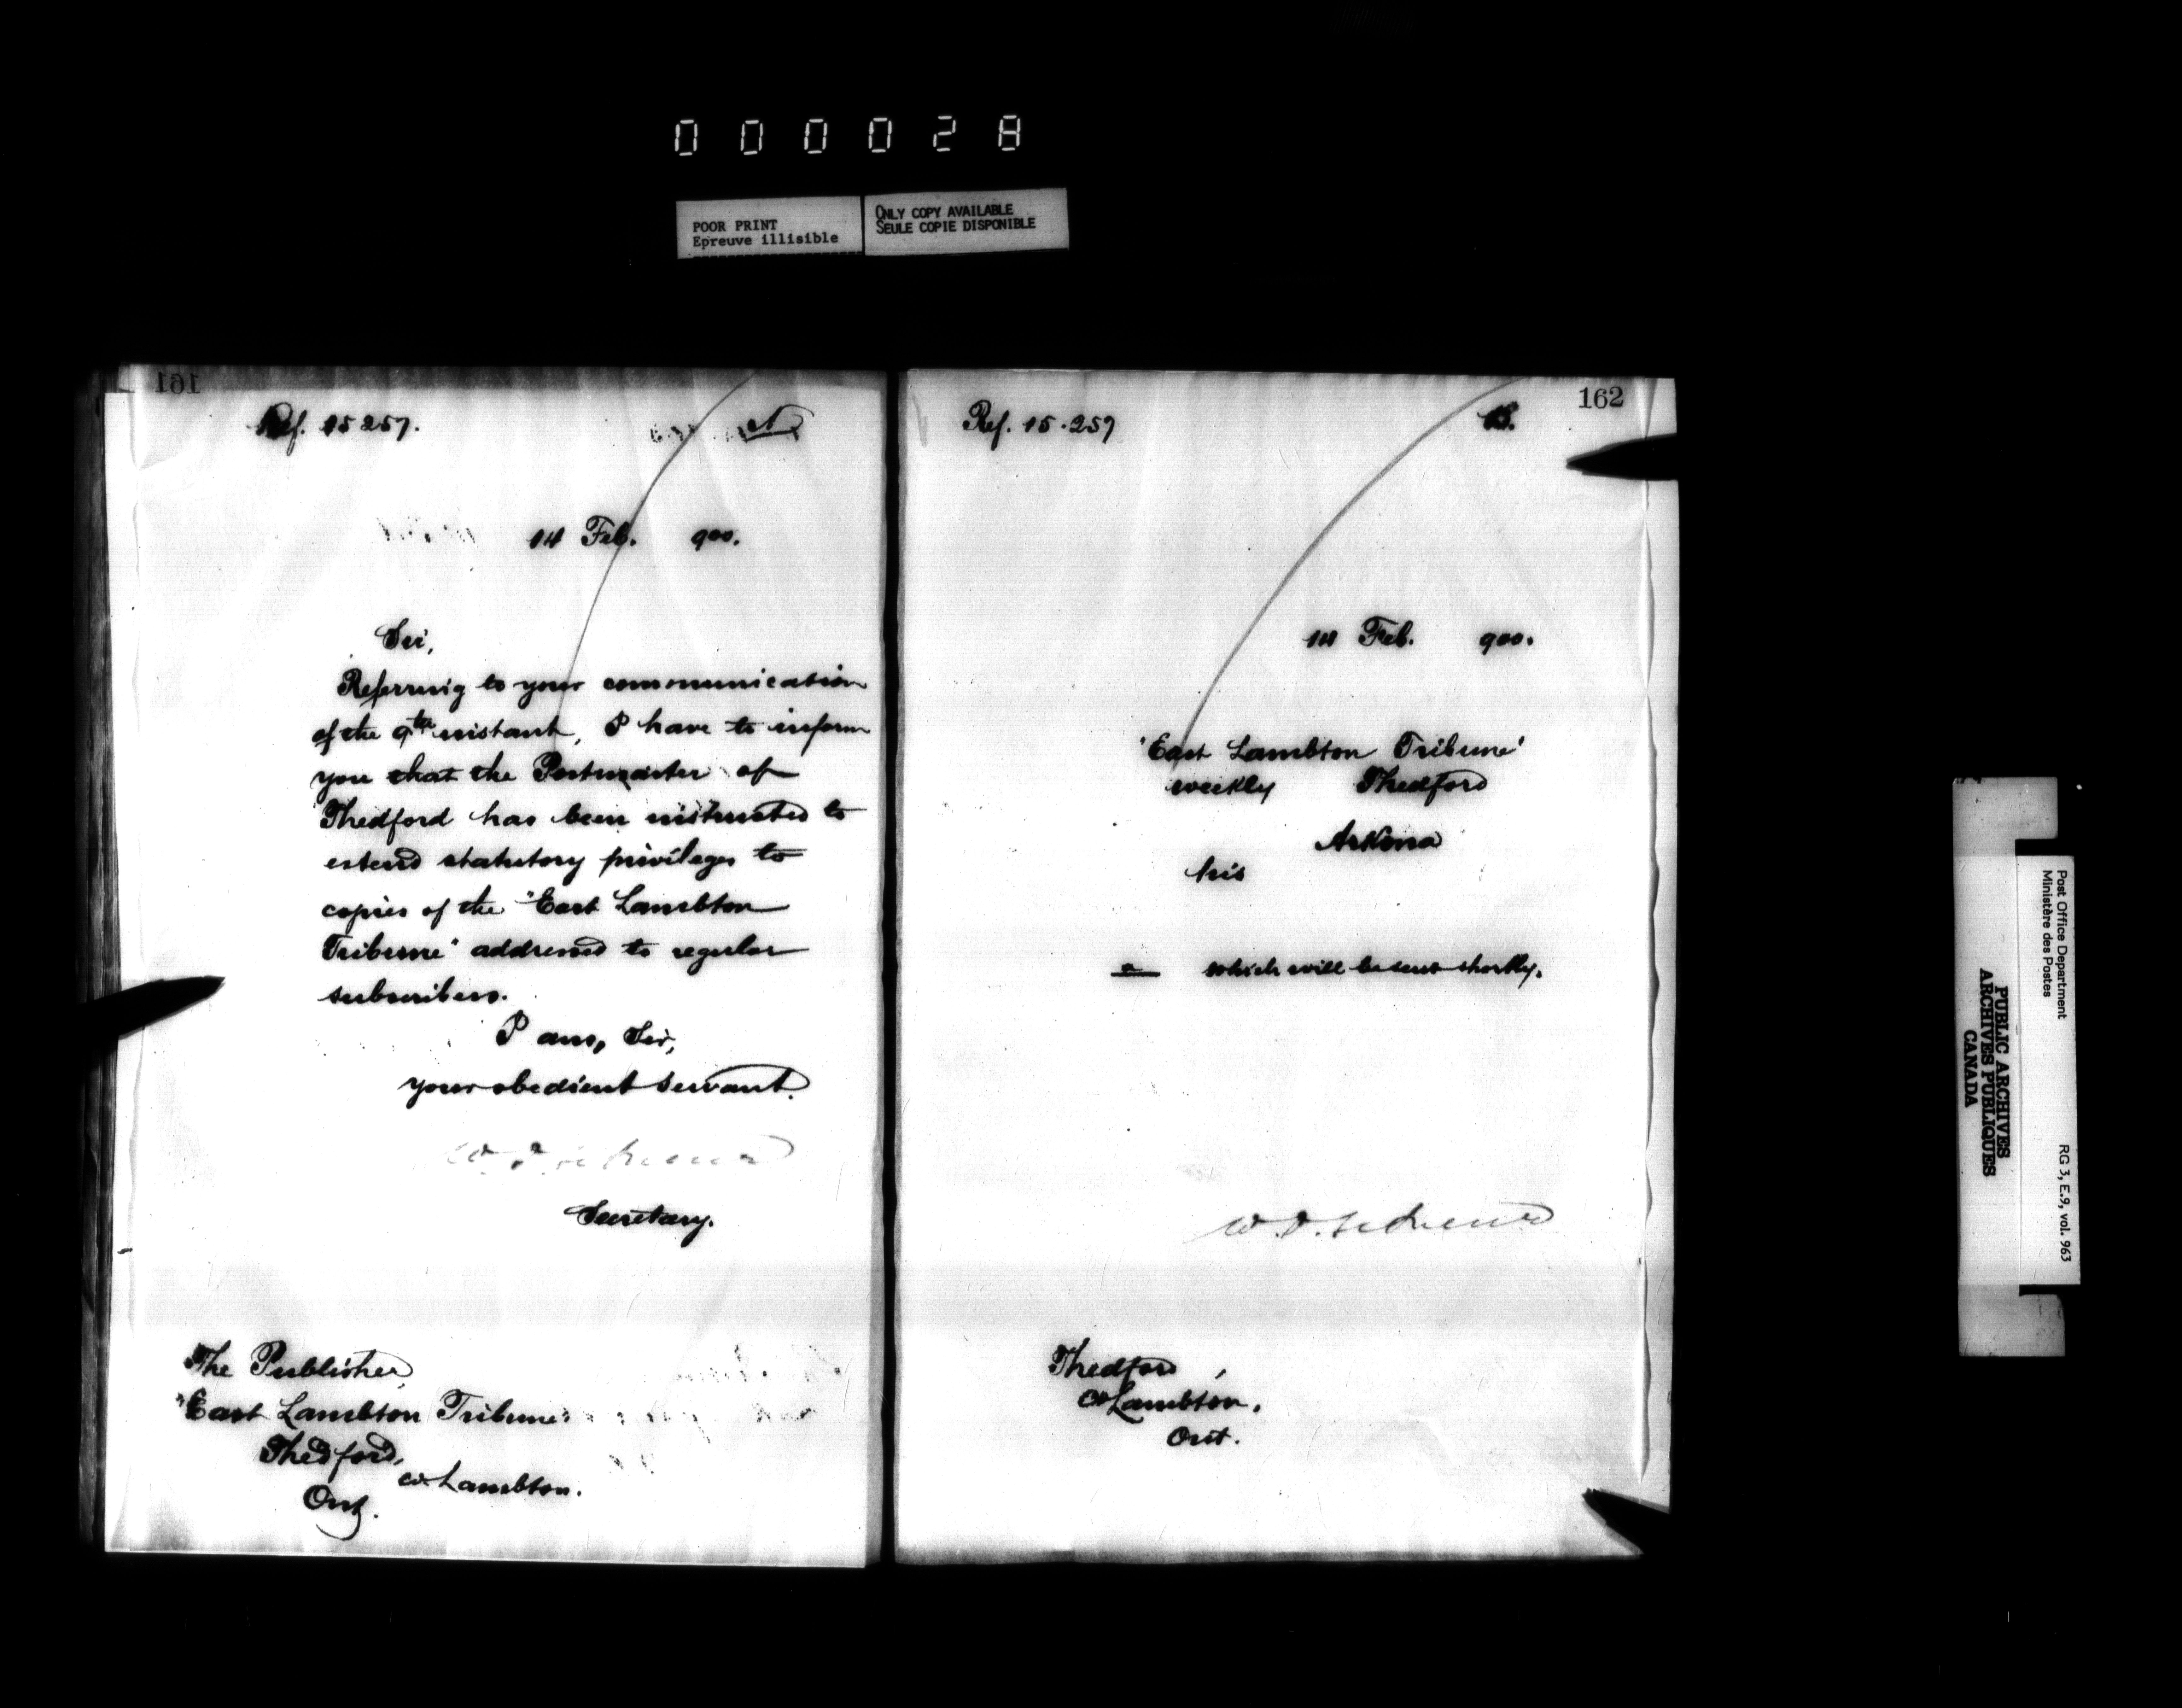 000028
POOR PRINT
Epreuve illisible
ONLY COPY AVAILABLE
SEULE COPIE DISPONIBLE
161
Ref. 15257.
14 Feb. 900.
Sir,
Referring to your communication
of the 9th instant, I have to inform
you that the Postmaster of
Thedford has been instructed to
extend statutory privileges to
copies of the "East Lambton
Tribune" addressed to regular
subscribers.
I am, Sir,
your obedient servant.
Secretary.
The Publisher,
"East Lambton Tribune"
Thedford,
co Lambton.
Ont.
162
Ref. 15.257
B.
14 Feb. 900.
'East Lambton Tribune'
weekly Thedford
Arkona
his
which will be sent shortly.
Thedford,
Co Lambton,
Ont.
Post Office Department
Ministère des Postes
RG 3, E.9, vol. 963
PUBLIC ARCHIVES
ARCHIVES PUBLIQUES
CANADA